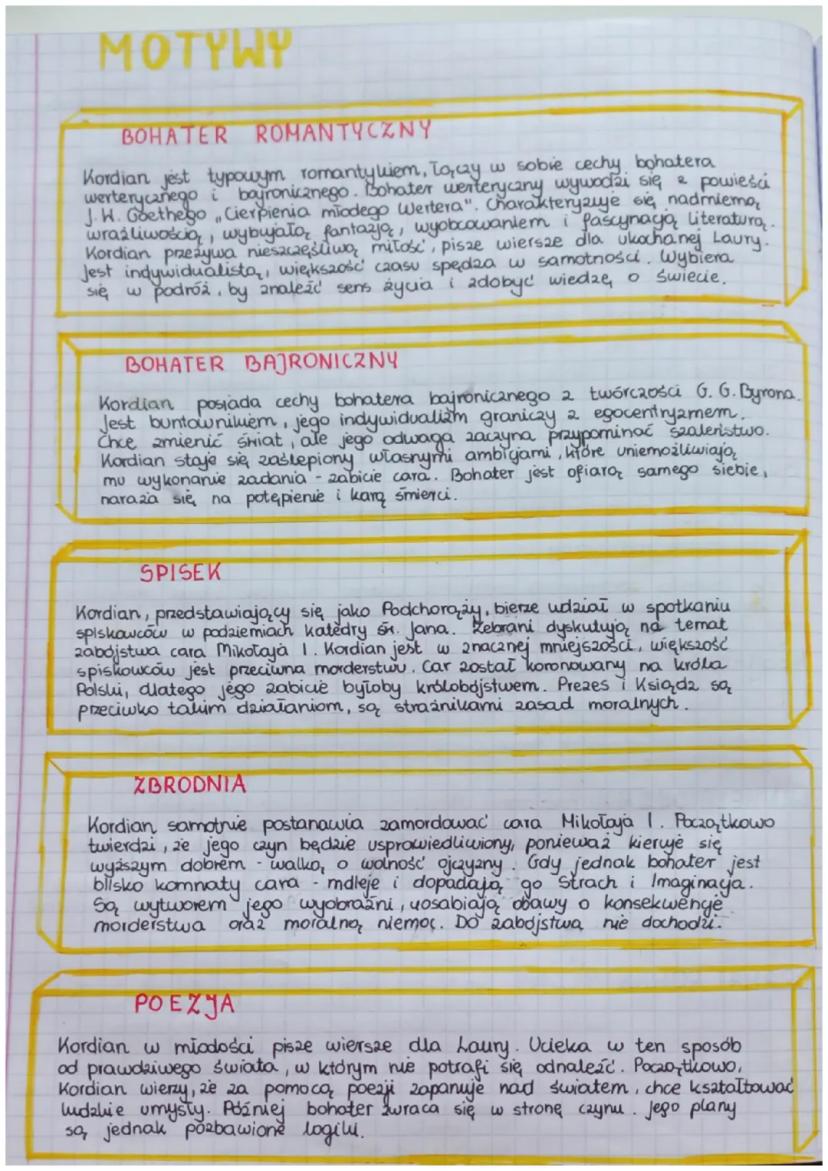 MOTYWY
BOHATER ROMANTYCZNY
Kordian jest typowym romantykiem, łączy w sobie cechy bohatera
werterycznego i bajronicznego. Bohater werteryczny wywodzi się z powieści
J. W. Goethego „Cierpienia młodego Wertera". Charakteryzuje się nadmierną
wrażliwością, wybujałą fantazją, wyobcowaniem i fascynacją literaturą.
Kordian przeżywa nieszczęśliwą miłość, pisze wiersze dla ukochanej Laury.
Jest indywidualistą, większość czasu spędza w samotności. Wybiera
się w podróż, by znaleźć sens życia i zdobyć wiedzę o świecie.
BOHATER BAJRONICZNY
Kordian posiada cechy bohatera bajronicznego z twórczości G. G. Byrona.
Jest buntownikiem, jego indywidualizm graniczy z egocentryzmem.
Chce zmienić świat, ale jego odwaga zaczyna przypominać szaleństwo.
Kordian staje się zaślepiony własnymi ambicjami, które uniemożliwiają
mu wykonanie zadania - zabicie cara. Bohater jest ofiarą samego siebie,
naraża się na potępienie i karę śmierci.
SPISEK
Kordian, przedstawiający się jako Podchorąży, bierze udział w spotkaniu
spiskowców w podziemiach katedry św. Jana. Zebrani dyskutują na temat
zabójstwa cara Mikołaja I. Kordian jest w znacznej mniejszości, większość
spiskowców jest przeciwna morderstwu. Car został koronowany na króla
Polski, dlatego jego zabicie byłoby królobójstwem. Prezes i Ksiądz są
przeciwko takim działaniom, są strażnikami zasad moralnych.
ZBRODNIA
Kordian samotnie postanawia zamordować cara Mikołaja I. Początkowo
twierdzi, że jego czyn będzie usprawiedliwiony, ponieważ kieruje się
wyższym dobrem - walką o wolność ojczyzny. Gdy jednak bohater jest
blisko komnaty cara - mdleje i dopadają go Strach i Imaginacja.
Są wytworem jego wyobraźni, uosabiają obawy o konsekwencje
morderstwa oraz moralną niemoc. Do zabójstwa nie dochodzi.
POEZJA
Kordian w młodości pisze wiersze dla Laury. Ucieka w ten sposób
od prawdziwego świata, w którym nie potrafi się odnaleźć. Początkowo,
Kordian wierzy, że za pomocą poezji zapanuje nad światem, chce kształtować
ludzkie umysły. Później bohater zwraca się w stronę czynu. Jego plany
są jednak pozbawione logiki.